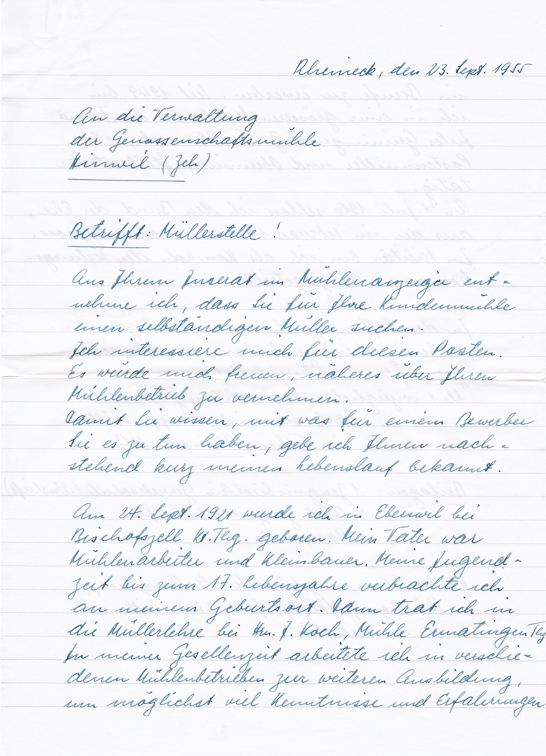 Rheineck, den 23. Sept. 1955
An die Verwaltung
der Genossenschaftsmühle
Hinwil (Zch)
Betrifft: Müllerstelle !
Aus Ihrem Inserat im Mühlenanzeiger ent-
nehme ich, dass Sie für Ihre Kundenmühle
einen selbständigen Müller suchen.
Ich interessiere mich für diesen Posten.
Es würde mich freuen, näheres über Ihren
Mühlenbetrieb zu vernehmen.
Damit Sie wissen, mit was für einem Bewerber
Sie es zu tun haben, gebe ich Ihnen nach-
stehend kurz meinen Lebenslauf bekannt.
Am 24. Sept. 1921 wurde ich in Eberswil bei
Bischofszell Kt. Thg. geboren. Mein Vater war
Mühlenarbeiter und Kleinbauer. Meine Jugend-
zeit bis zum 17. Lebensjahre verbrachte ich
an meinem Geburtsort. Dann trat ich in
die Müllerlehre bei Hrn. J. Koch, Mühle Ermatingen Thg
In meiner Gesellenzeit arbeitete ich in verschie-
denen Mühlenbetrieben zur weiteren Ausbildung,
um möglichst viel Kenntnisse und Erfahrungen